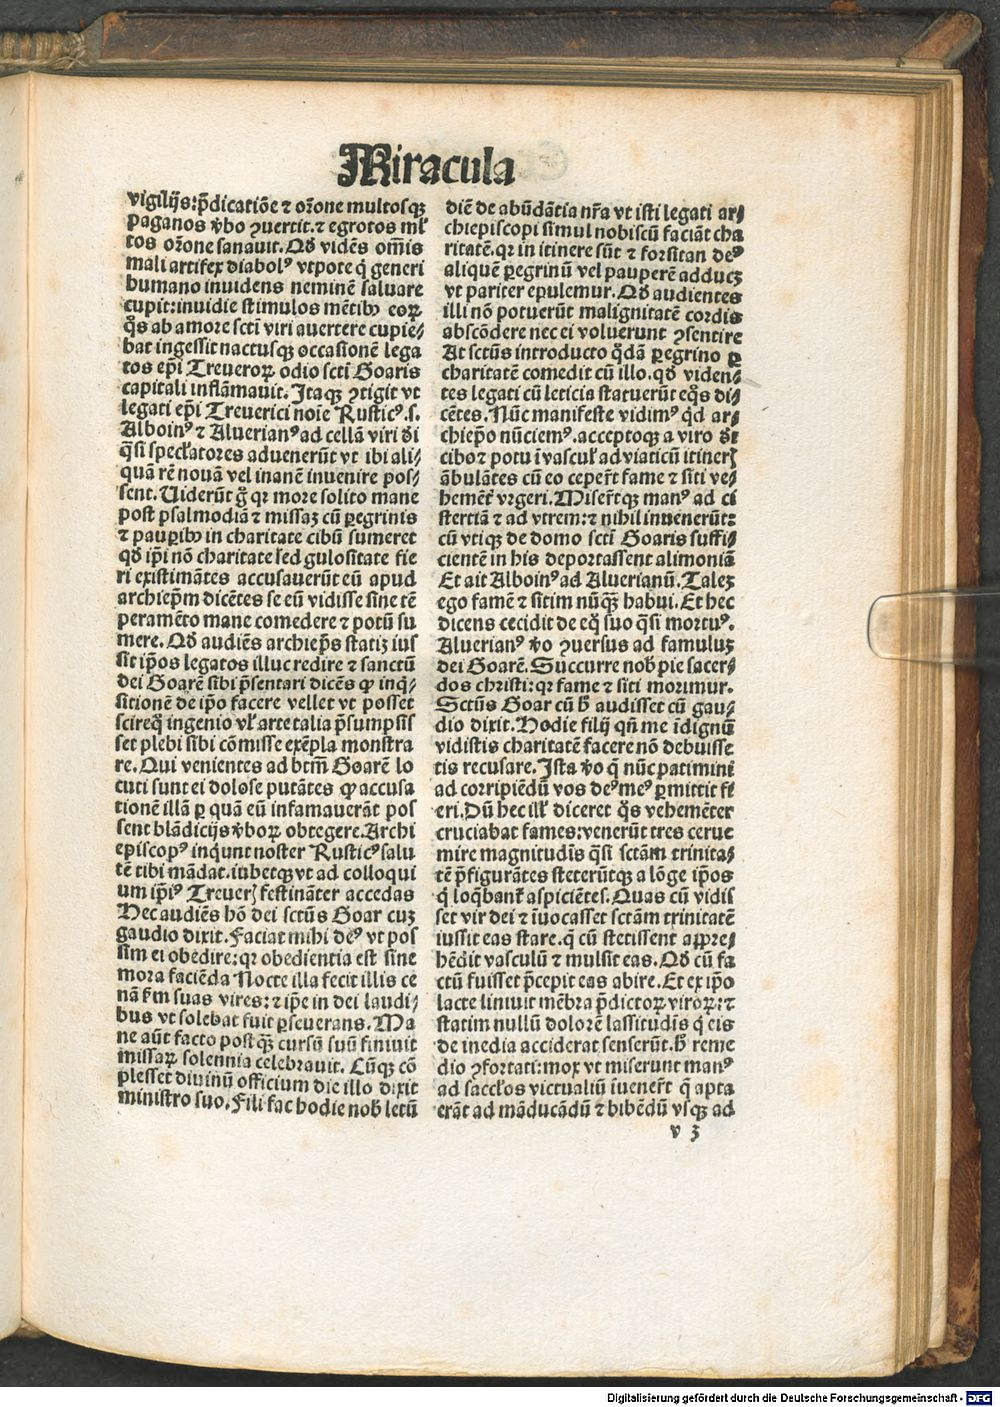 Miracula
vigilijs: p̄dicatiōe ⁊ or̄one multosqꝫ
paganos v̾bo ꝯuertit. ⁊ egrotos ml̾
tos or̄one sanauit. Qd̾ vidēs oīm̄s
mali artifex diabolꝰ vtpote q̇ generi
humano inuidens neminē saluare
cupit: inuidie stimulos mētibꝫ eoꝝ
q̄s ab amore sctī viri auertere cupie⸗
bat ingessit nactusqꝫ occasionē lega
tos ep̄i Treueroꝝ odio sctī Goaris
capitali inflāmauit. Itaqꝫ ꝯtigit vt
legati ep̄i Treuerici noīe Rusticꝰ. s.
Alboinꝰ ⁊ Aluerianꝰ ad cellā viri d̾i
q̄si specl̾atores aduenerūt vt ibi ali⸗
quā rē nouā vel inanē inuenire pos⸗
sent. Uiderūt g̊ qꝛ more solito mane
post psalmodiā ⁊ missaꝫ cū ꝑegrinis
⁊ paupibꝫ in charitate cibū sumeret
qd̾ ip̄i nō charitate sed gulositate fie
ri existimātes accusauerūt eū apud
archiep̄m dicētes se eū vidisse sine tē
peramēto mane comedere ⁊ potū su
mere. Qd̾ audiēs archiep̄s statiꝫ ius
sit ip̄os legatos illuc redire ⁊ sanctū
dei Goarē sibi p̄sentari dicēs ꝙ inq̇⸗
sitionē de ip̄o facere vellet vt posset
scire q̊ ingenio vl̾ arte talia p̄sumpsis
set plebi sibi cōmisse exēpla monstra
re. Qui venientes ad btm̄ Goarē lo
cuti sunt ei dolose putātes ꝙ accusa
tionē illā ꝑ quā eū infamauerāt pos
sent blādicijs v̾boꝝ obtegere. Archi
episcopꝰ inq̇unt noster Rusticꝰ salu
tē tibi mādat. iubetqꝫ vt ad colloqui
um ip̄iꝰ Treueꝝ festināter accedas
Hec audiēs hō dei sctūs Goar cuꝫ
gaudio dixit. Faciat mihi deꝰ vt pos
sim ei obedire: qꝛ obedientia est sine
mora faciēda Nocte illa fecit illis ce
nā s̄m suas vires: ⁊ ip̄e in dei laudi⸗
bus vt solebat fuit ꝑseuerans. Ma
ne aūt facto postqꝫ cursū suū finiuit
missaꝝ solennia celebrauit. Cūqꝫ cō
plesset diuinū officium die illo dixit
ministro suo. Fili fac hodie nob̾ letū
diē de abūdātia nr̄a vt isti legati ar⸗
chiepiscopi simul nobiscū faciāt cha
ritatē. qꝛ in itinere sūt ⁊ forsitan deꝰ
aliquē ꝑegrinū vel pauperē adducꝫ
vt pariter epulemur. Qd̾ audientes
illi nō potuerūt malignitatē cordis
abscōdere nec ei voluerunt ꝯsentire
At sctūs introducto q̊dā ꝑegrino ꝑ
charitatē comedit cū illo. qd̾ viden⸗
tes legati cū leticia statuerūt eq̊s di⸗
cētes. Nūc manifeste vidimꝰ q̇d ar⸗
chiep̄o nūciemꝰ. acceptoqꝫ a viro d̾i
cibo ⁊ potu ī vascul̾ ad viaticū itineꝝ
ābulātes cū eo ceper̄t fame ⁊ siti ve⸗
hemēt̾ vrgeri. Miser̄tqꝫ manꝰ ad ci
stertiā ⁊ ad vtrem: ⁊ nihil inuenerūt:
cū vtiqꝫ de domo sctī Goaris suffi⸗
cientē in his deportassent alimoniā
Et ait Alboinꝰ ad Aluerianū. Taleꝫ
ego famē ⁊ sitim nūqꝫ habui. Et hec
dicens cecidit de eq̊ suo q̄si mortuꝰ.
Aluerianꝰ v̾o ꝯuersus ad famuluꝫ
dei Goarē. Succurre nob̾ pie sacer⸗
dos christi: qꝛ fame ⁊ siti morimur.
Sctūs Goar cū h̾ audisset cū gau⸗
dio dixit. Hodie filij qn̄ me īdignū
vidistis charitatē facere nō debuisse
tis recusare. Ista v̾o q̄ nūc patimini
ad corripiēdū vos deꝰ meꝰ ꝑmittit fi
eri. Dū hec ill̾ diceret q̊s vehemēter
cruciabat fames: venerūt tres cerue
mire magnitudīs q̄si sctām trinita⸗
tē p̄figurātes steterūtqꝫ a lōge ip̄os
q̇ loq̄bant̾ aspiciētes. Quas cū vidis
set vir dei ⁊ īuocasset sctām trinitatē
iussit eas stare. q̄ cū stetissent appre⸗
hēdit vasculū ⁊ mulsit eas. Qd̾ cū fa
ctū fuisset p̄cepit eas abire. Et ex ip̄o
lacte liniuit mēbra p̄dictoꝝ viroꝝ: ⁊
statim nullū dolorē lassitudīs q̇ eis
de inedia acciderat senserūt. h̾ reme
dio ꝯfortati: mox vt miserunt manꝰ
ad saccl̾os victualiū īuener̄t q̄ apta
erāt ad māducādū ⁊ bibēdū vsqꝫ ad
v 3
Digitalisierung gefördert durch die Deutsche Forschungsgemeinschaft - DFG